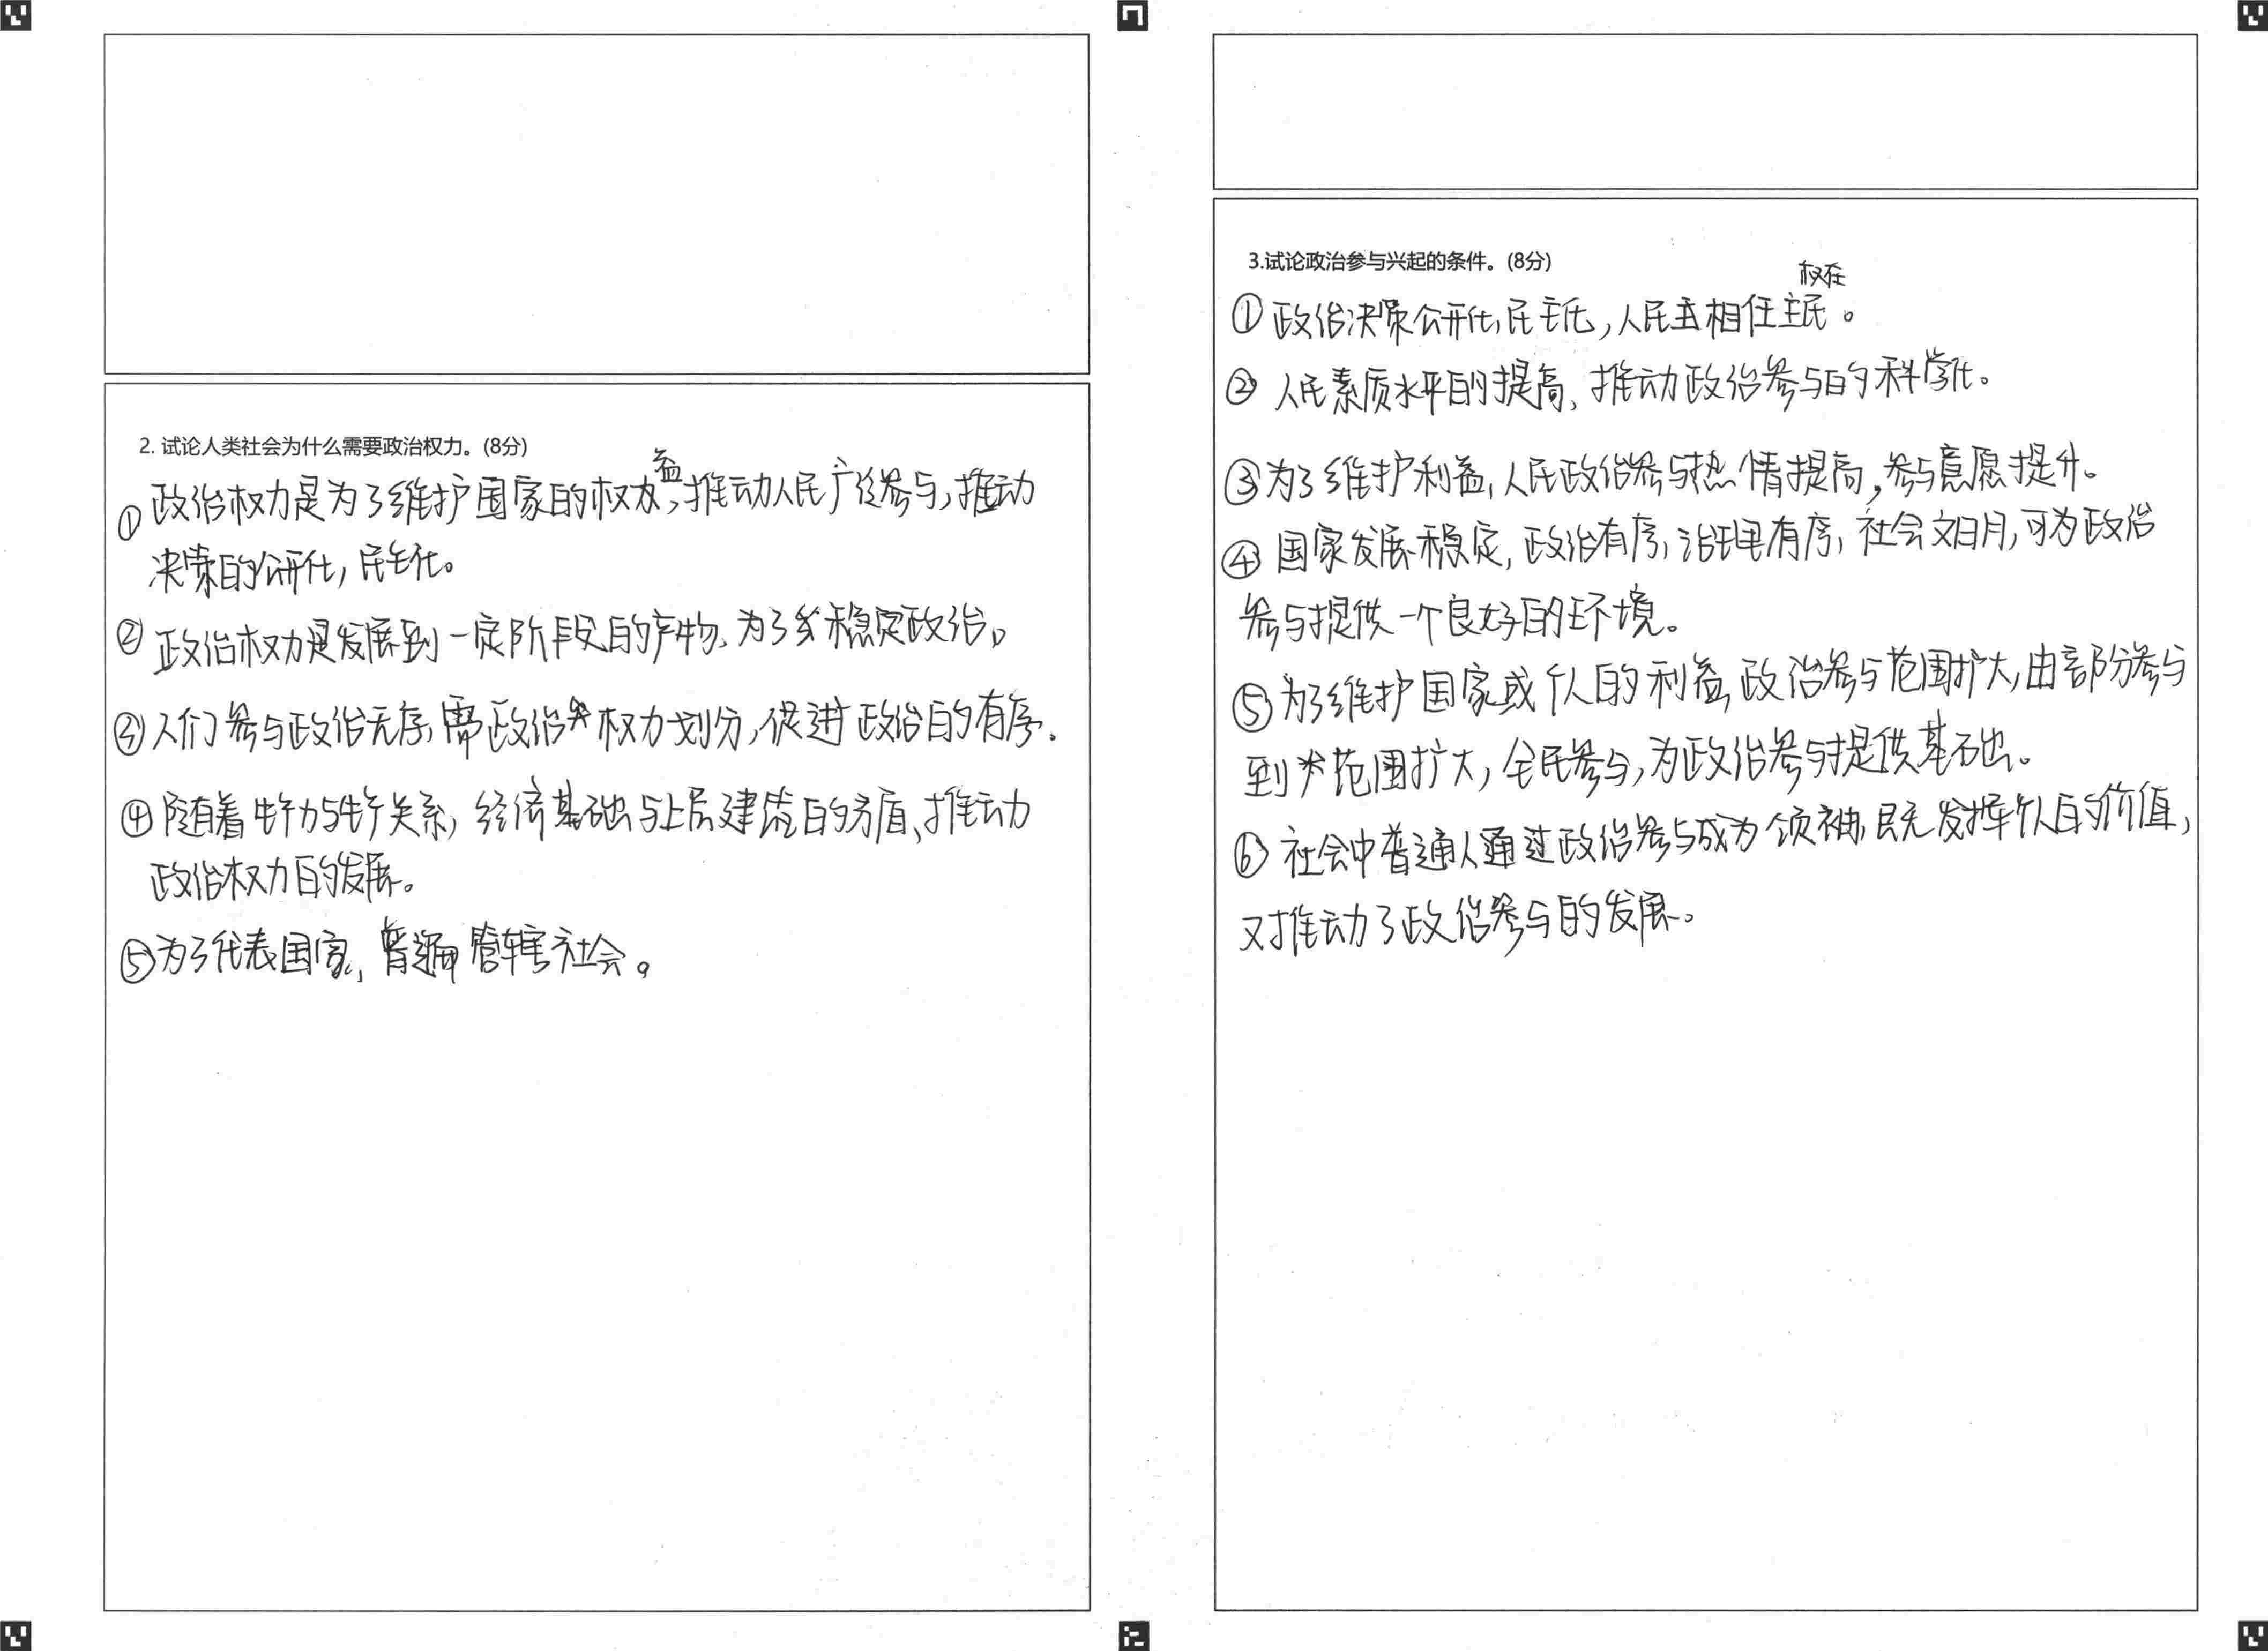 2. 试论人类社会为什么需要政治权力。(8分)
①政治权力是为了维护国家的权益,推动人民广泛参与,推动
决策的公开化,民主化。
②政治权力是发展到一定阶段的产物,为了稳定政治。
③人们参与政治无序,需政治权力划分,促进政治的有序.
④随着生产力与生产关系,经济基础与上层建筑的矛盾、推动
政治权力的发展。
⑤为了代表国家,普遍管辖社会。
3.试论政治参与兴起的条件。(8分)
①政治决策公开化,民主化,人民主权在民。
②人民素质水平的提高、推动政治参与的科学化。
③为了维护利益,人民政治参与热情提高,参与意愿提升。
④国家发展稳定,政治有序,治理有序,社会文明,可为政治
参与提供一个良好的环境。
⑤为了维护国家或个人的利益,政治参与范围扩大,由部分参与
到范围扩大,全民参与,为政治参与提供基础。
⑥社会中普通人通过政治参与成为领袖,既发挥个人的价值,
又推动了政治参与的发展。